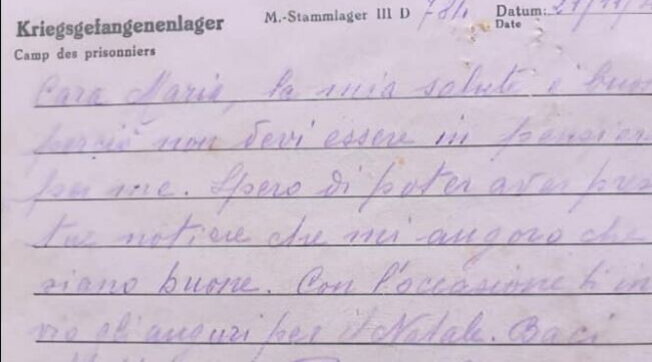 Kriegsgefangenenlager M.-Stammlager III D 784 Datum: 21/11/
Camp des prisonniers Date
Cara Maria, la mia salute è buon
perciò non devi essere in pensier
per me. Spero di poter aver pres
tue notizie che mi auguro che
siano buone. Con l'occasione ti in
vio gli auguri per il Natale. Baci